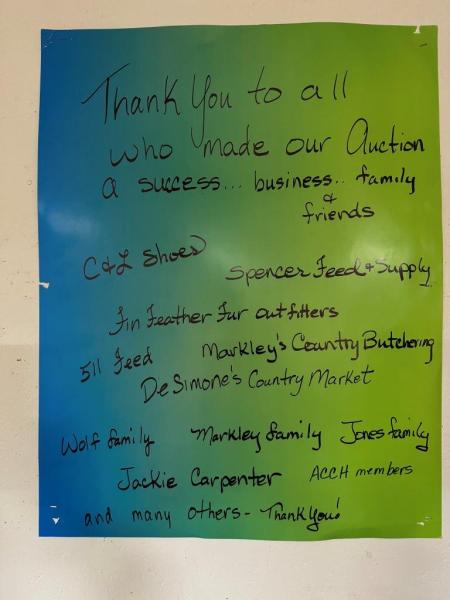 Thank You to all
who made our Auction
a success... business.. family
&
friends
C&L Shoes
Spencer Feed & Supply
Fin Feather Fur outfitters
511 Feed
Markley's Country Butchering
DeSimone's Country Market
Wolf family Markley family Jones family
Jackie Carpenter ACCH members
and many others - Thank You!